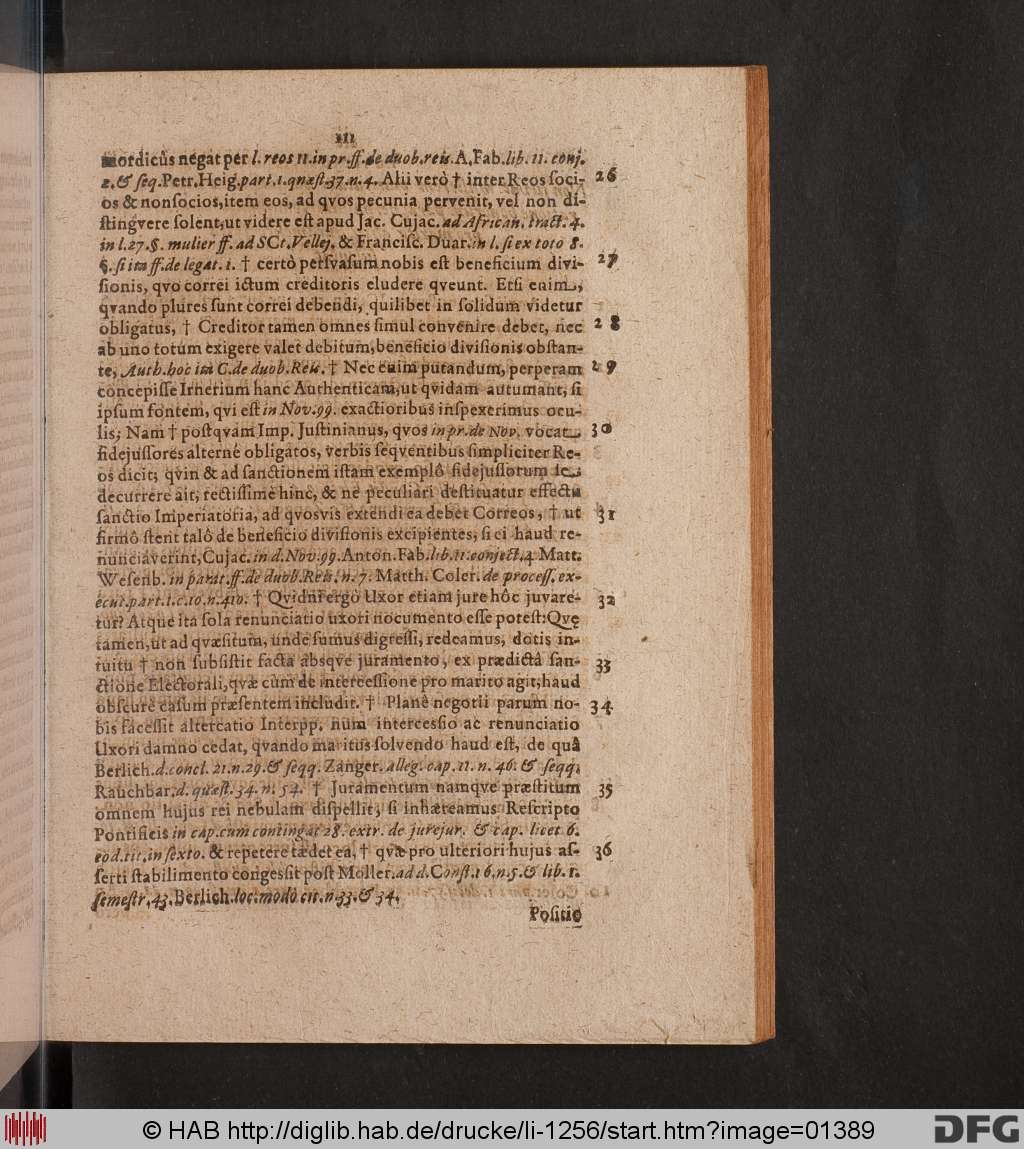 111
mordicùs negat per l. reos 11. in pr. ff. de duob. reis. A. Fab. lib. 11. conj.
2. & ſeq. Petr. Heig. part. 1. quæſt. 37. n. 4. Alii verò † inter Reos ſoci- 26
os & nonſocios, item eos, ad qvos pecunia pervenit, vel non di-
ſtingvere ſolent, ut videre eſt apud Jac. Cujac. ad African. tract. 4.
in l. 27. §. mulier ff. ad SCt. Vellej. & Franciſc. Duar. in l. ſi ex toto 8.
§. ſi ita ff. de legat. 1. † certò perſvaſum nobis eſt beneficium divi- 27
ſionis, qvo correi ictum creditoris eludere qveunt. Etſi enim,
qvando plures ſunt correi debendi, quilibet in ſolidum videtur
obligatus, † Creditor tamen omnes ſimul convenire debet, nec 28
ab uno totum exigere valet debitum, beneficio diviſionis obſtan-
te, Auth. hoc ita C. de duob. Reis. † Nec enim putandum, perperam 29
concepiſſe Irnerium hanc Authenticam, ut qvidam autumant, ſi
ipſum fontem, qvi eſt in Nov. 99. exactioribus inſpexerimus ocu-
lis; Nam † poſtqvam Imp. Juſtinianus, qvos in pr. de Nov. vocat 30
fidejuſſores alternè obligatos, verbis ſeqventibus ſimpliciter Re-
os dicit; qvin & ad ſanctionem iſtam exemplô fidejuſſorum ſe
decurrere ait; rectiſſimè hinc, & ne peculiari deſtituatur effectu
ſanctio Imperiatoria, ad qvosvis extendi ea debet Correos, † ut 31
firmô ſterit talô de beneficio diviſionis excipientes, ſi ei haud re-
nunciaverint, Cujac. in d. Nov. 99. Anton. Fab. lib. 11. conject. 4. Matt.
Weſenb. in parat. ff. de duob. Reis. n. 7. Matth. Coler. de proceſſ. ex-
ecut. part. 1. c. 10. n. 410. † Qvidni ergo Uxor etiam jure hôc juvare- 32
tur? Atque ita ſola renunciatio uxori nocumento eſſe poteſt: Qvę
tamen, ut ad qvæſitum, unde ſumus digreſſi, redeamus, dotis in-
tuitu † non ſubſiſtit facta absqve juramento, ex prædictâ ſan- 33
ctione Electorali, qvæ cùm de interceſſione pro marito agit; haud
obſcurè caſum præſentem includit. † Planè negotii parum no- 34
bis faceſſit altercatio Interpp. num interceſſio ac renunciatio
Uxori damno cedat, qvando maritus ſolvendo haud eſt, de quâ
Berlich. d. concl. 21. n. 29. & ſeqq. Zanger. alleg. cap. 11. n. 46. & ſeqq.
Rauchbar. d. quæſt. 34. n. 54. † Juramentum namqve præſtitum 35
omnem hujus rei nebulam diſpellit, ſi inhæreamus Reſcripto
Pontificis in cap. cum contingat 28. extr. de jurejur. & cap. licet 6.
eod. tit. in ſexto. & repetere tædet ea, † qvæ pro ulteriori hujus aſ- 36
ſerti ſtabilimento congeſſit poſt Moller. ad d. Conſt. 16. n. 5. & lib. 1.
ſemeſtr. 43. Berlich. loc. modò cit. n. 33. & 34.
Poſitio
© HAB http://diglib.hab.de/drucke/li-1256/start.htm?image=01389
DFG